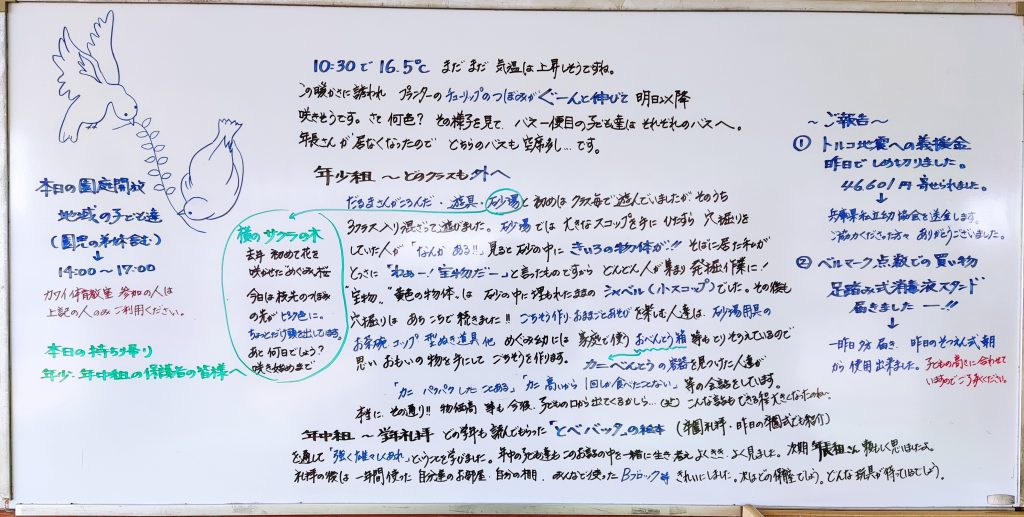 10:30で 16.5℃ まだまだ 気温は上昇しそうですね。
この暖かさに誘われ プランターのチューリップのつぼみがぐーんと伸びて 明日以降
咲きそうです。さて 何色? その様子を見て、バス一便目の子ども達は それぞれのバスへ。
年長さんが居なくなったので どちらのバスも 空席多し…です。
年少組 〜 どのクラスも外へ
だるまさんがころんだ・遊具・砂場と 初めは クラス毎で 遊んでいましたが、そのうち
3クラス入り混ざって遊びました。砂場では 大きなスコップを手に ひたすら 穴掘りを
していた人が「なんか ある!!」見ると 砂の中に きいろの物体が!! そばに居た私が
とっさに「わぁー!宝物だー」と言ったものですから どんどん人が集まり 発掘作業に!
"宝物" "黄色の物体"は 砂の中に 埋もれたままの シャベル(小スコップ)でした。その後も
穴掘りは あちこちで 続きました!! ごちそう作り・おままごとあそびを楽しむ人達は、砂場用具の
お茶碗 コップ 型ぬき道具 他 めぐみ幼には 家庭で使う おべんとう箱 等も とりそろえているので
思い おもいの 物を手にして ごちそうを作ります。 カニべんとうの容器を見つけた人達が
「カニ パクパクしたことある」「カニ 高いから 1回しか食べたことない」等の会話をしています。
本当に その通り!! 物価高 等も 今後 子どもの口から出てくるかしら…(笑) こんな話もできる程 大きくなったのね。
年中組 〜 学年礼拝 どの学年も 読んでもらった「とべバッタ」の絵本 (卒園礼拝・昨日の卒園式でも紹介)
を通して「強く雄々しくあれ」ということを学びました。年中の子ども達も このお話の中を一緒に生き 考え よくきき、よく見ました。次期 年長組さん 頼もしく思いました。
礼拝の後は 一年間使った 自分達のお部屋 自分の棚 みんなで使った Bブロック等 きれいにしました。次はどの部屋でしょう。どんな玩具が待っているでしょう。
本日の園庭開放
地域の子ども達
(園児の弟妹含む)
↓
14:00〜17:00
カワイ体育教室 参加の人は
上記の人のみご利用ください。
本日の持ち帰り
年少.年中組の保護者の皆様へ
横のサクラの木
去年 初めて花を
咲かせためぐみ桜
今日は 枝先のつぼみ
の先が ピンク色に。
ちょっとだけ頭を出しています。
あと 何日でしょう?
咲き始めまで
〜 ご報告 〜
① トルコ地震への義援金
昨日で しめ切りました。
46,601円 寄せられました。
↓
兵庫県私立幼協会を送金します。
ご協力くださった方々 ありがとうございました。
② ベルマーク点数での買い物
足踏み式消毒液スタンド
届きましたー!!
↓
一昨日 夕方 届き、昨日の そつえん式.朝
から 使用出来ました。子どもの高さに合わせて
いますのでご了承ください。